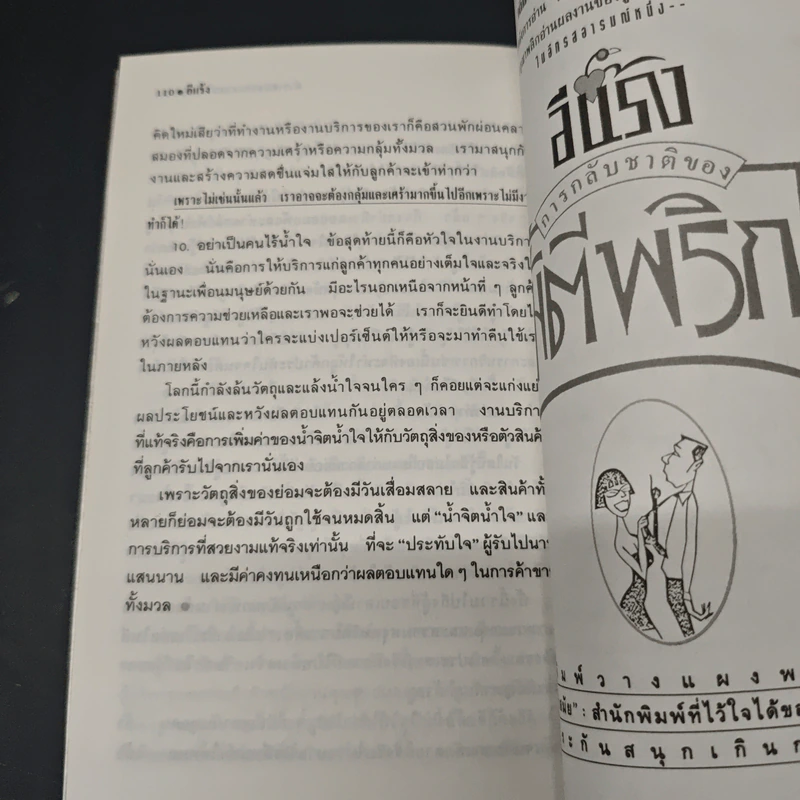 110 ● อีแร้ง
คิดใหม่เสียว่าที่ทำงานหรืองานบริการของเราก็คือสวนพักผ่อนคลา
สมองที่ปลอดจากความเศร้าหรือความกลุ้มทั้งมวล เรามาสนุกกั
งานและสร้างความสดชื่นแจ่มใสให้กับลูกค้าจะเข้าท่ากว่า
เพราะไม่เช่นนั้นแล้ว เราอาจจะต้องกลุ้มและเศร้ามากขึ้นไปอีกเพราะไม่มีงา
ทำก็ได้!
10. อย่าเป็นคนไร้น้ำใจ ข้อสุดท้ายนี้ก็คือหัวใจในงานบริกา
นั่นเอง นั่นคือการให้บริการแก่ลูกค้าทุกคนอย่างเต็มใจและจริงใ
ในฐานะเพื่อนมนุษย์ด้วยกัน มีอะไรนอกเหนือจากหน้าที่ ๆ ลูกค้
ต้องการความช่วยเหลือและเราพอจะช่วยได้ เราก็จะยินดีทำโดยไ
หวังผลตอบแทนว่าใครจะแบ่งเปอร์เซ็นต์ให้หรือจะมาทำคืนใช้เร
ในภายหลัง
โลกนี้กำลังล้นวัตถุและแล้งน้ำใจจนใคร ๆ ก็คอยแต่จะแก่งแย่
ผลประโยชน์และหวังผลตอบแทนกันอยู่ตลอดเวลา งานบริกา
ที่แท้จริงคือการเพิ่มค่าของน้ำจิตน้ำใจให้กับวัตถุสิ่งของหรือตัวสินค้
ที่ลูกค้ารับไปจากเรานั่นเอง
เพราะวัตถุสิ่งของย่อมจะต้องมีวันเสื่อมสลาย และสินค้าทั้
หลายก็ย่อมจะต้องมีวันถูกใช้จนหมดสิ้น แต่ “น้ำจิตน้ำใจ” และ
การบริการที่สวยงามแท้จริงเท่านั้น ที่จะ “ประทับใจ” ผู้รับไปนาน
แสนนาน และมีค่าคงทนเหนือกว่าผลตอบแทนใด ๆ ในการค้าขาย
ทั้งมวล ●
ในอัครสอารมณ์หนึ่ง--
อีแร้ง
การกลับชาติของ
ตีพริก
มพ์วางแผงพ
: สำนักพิมพ์ที่ไว้ใจได้ขอ
ะกันสนุกเกินก